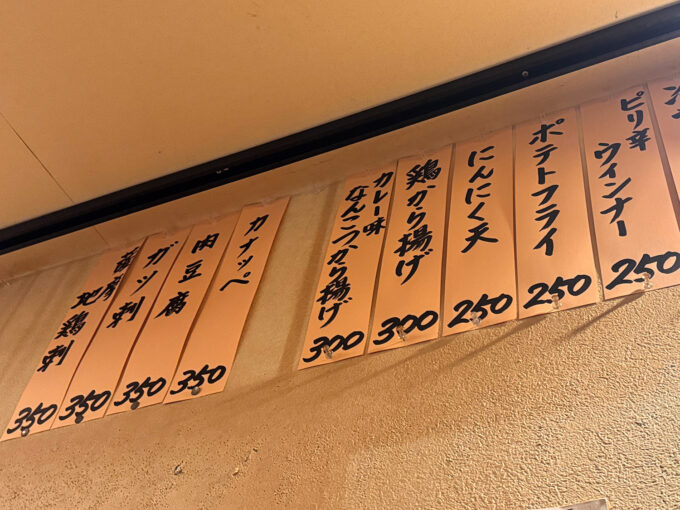 ピリ辛
ウインナー
250
ポテトフライ
250
にんにく天
250
鶏から揚げ
300
カレー味
なんこつから揚げ
300
カナッペ
350
肉豆腐
350
ガツ刺
350
地鶏刺
350